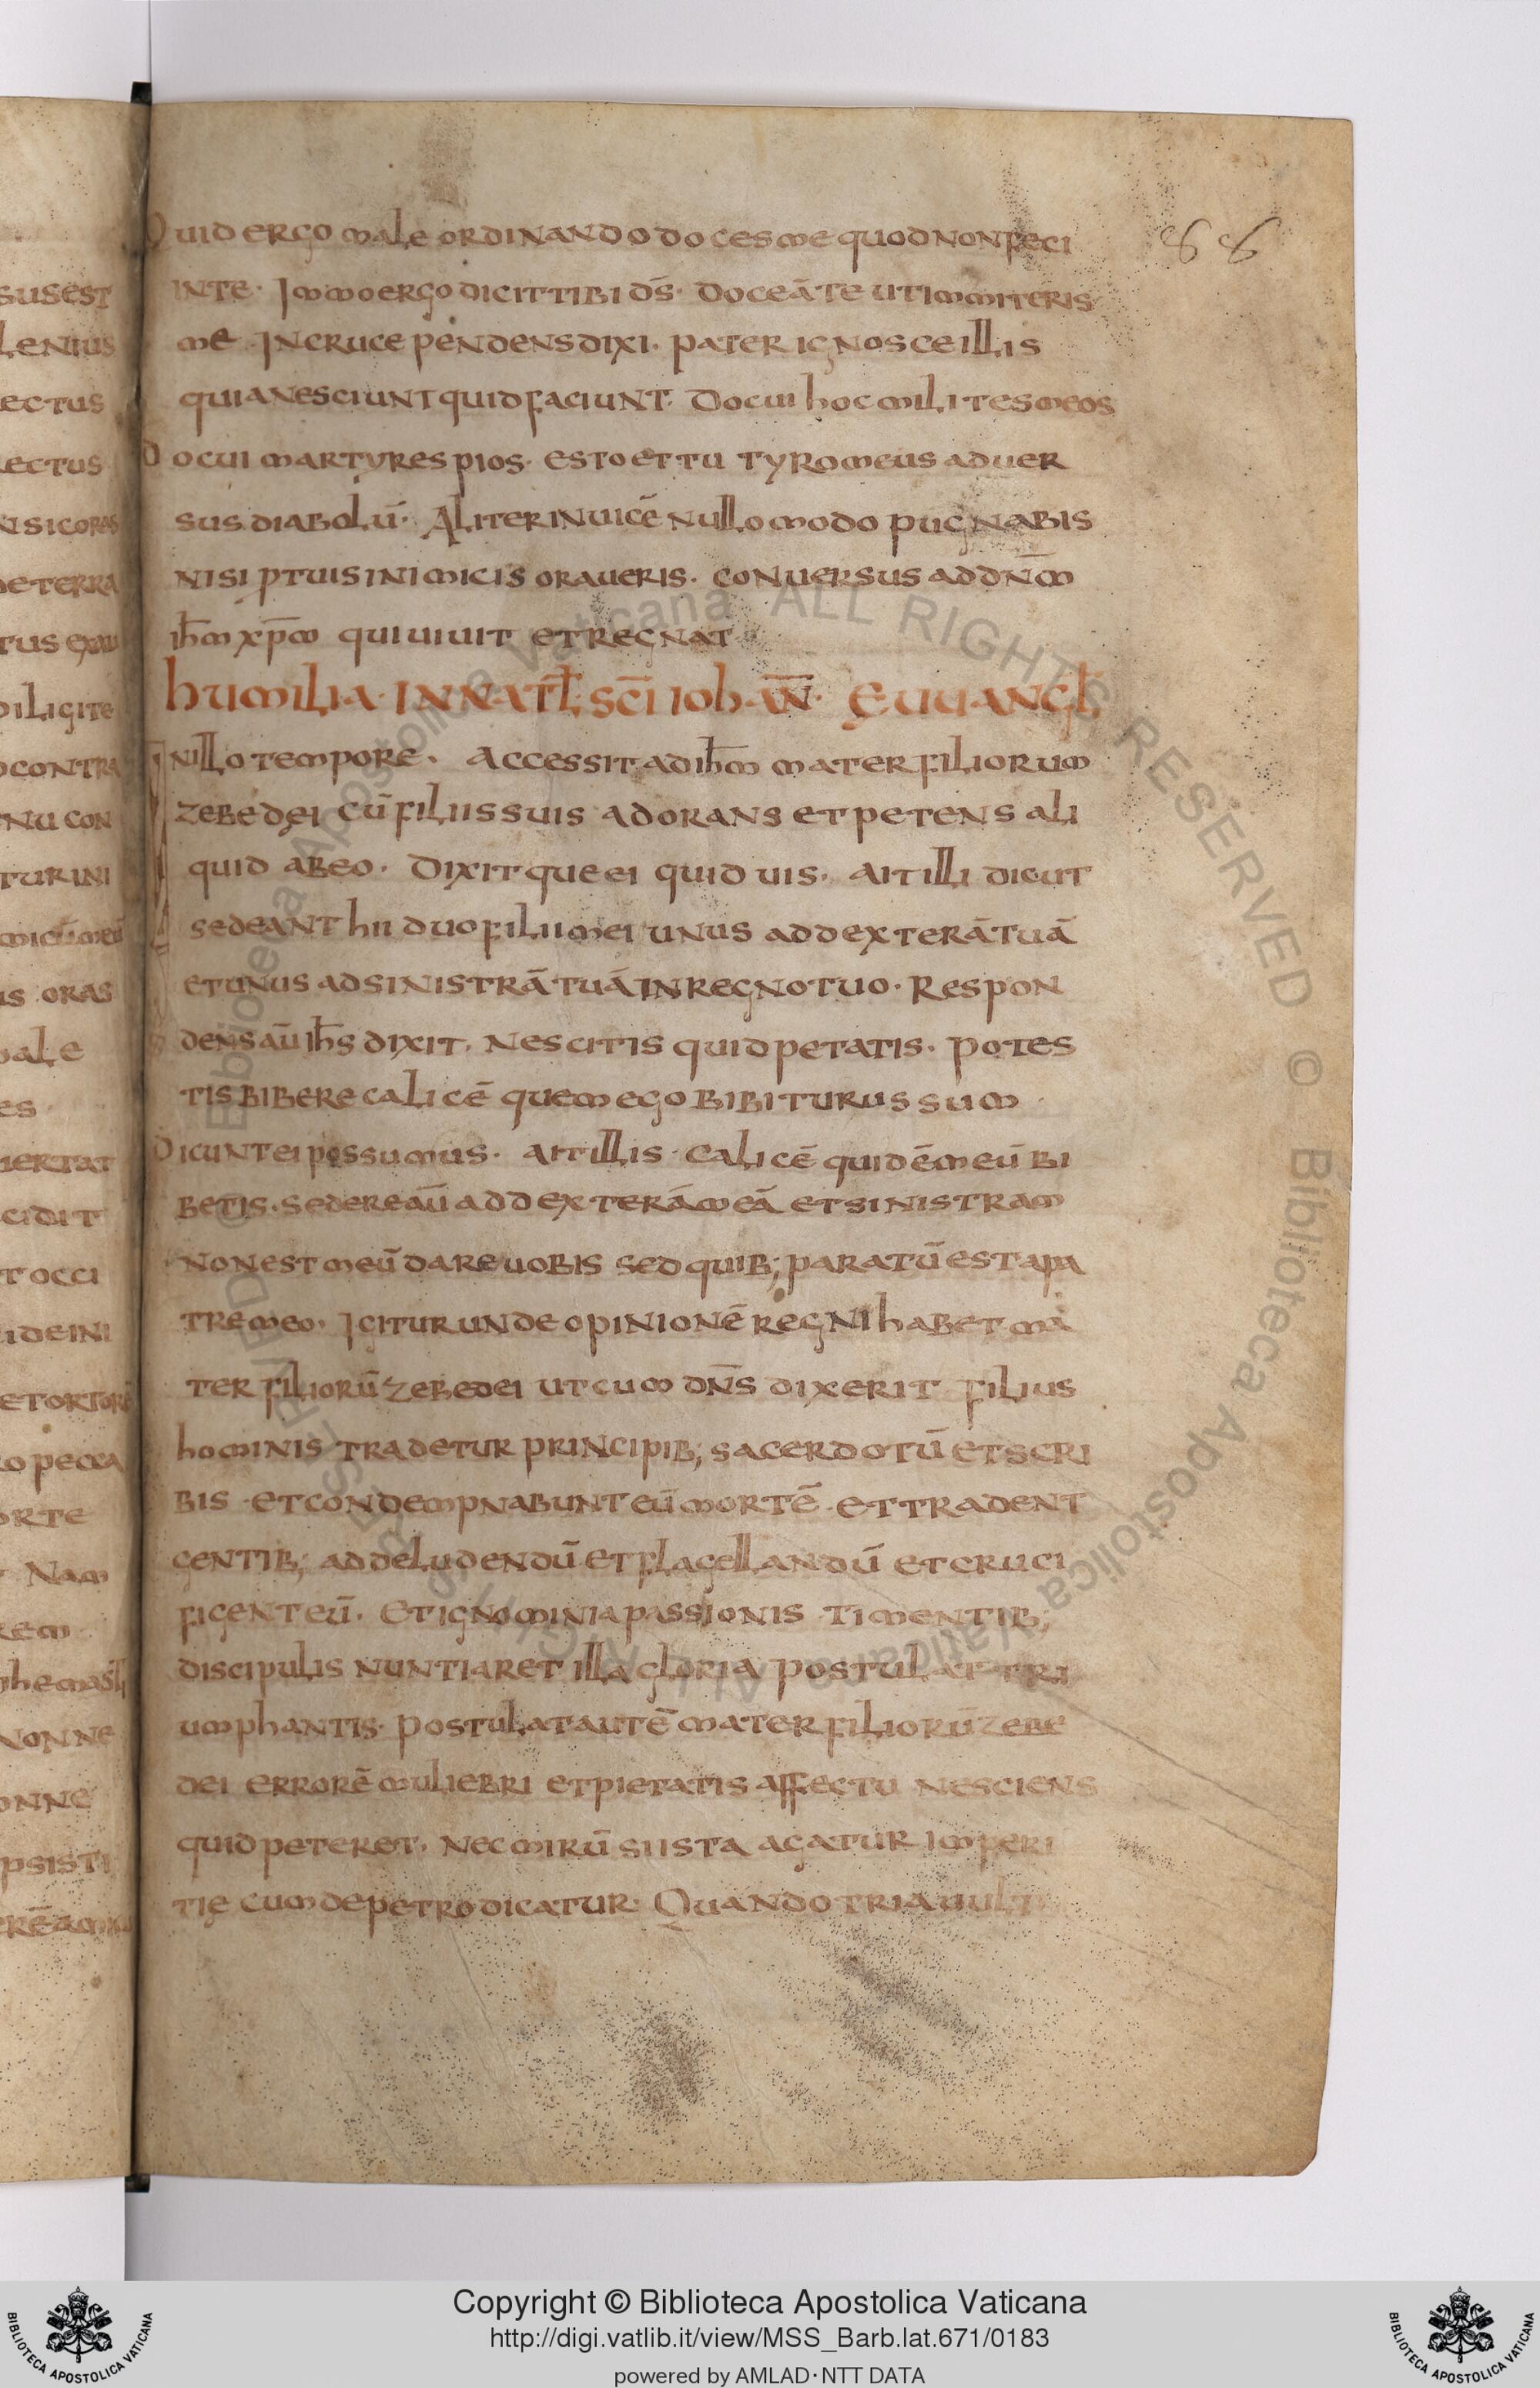 Quid ergo male ordinando doces me quod non feci
in te. Immo ergo dicit tibi d̄s. doceā te ut immiteris
me. In cruce pendens dixi. pater ignosce illis
quia nesciunt quid faciunt. Docui hoc milites meos
Docui martyres pios. esto et tu tyro meus aduer
sus diabolū. Aliter inuicē nullo modo pugnabis
nisi p tuis inimicis oraueris. conuersus ad dn̄m
ih̄m xp̄m qui uiuit et regnat
humilia. in natl̄. sc̄i ioh̄an̄. euuangl̄
In illo tempore. Accessit ad ih̄m mater filiorum
zebedęi cū filiis suis adorans et petens ali
quid ab eo. Dixitque ei quid uis. ait illi dic ut
sedeant hii duo filii mei unus ad dexterā tuā
et unus ad sinistrā tuā in regno tuo. Respon
dens aū ih̄s dixit. Nescitis quid petatis. potes
tis bibere calicē quem ego bibiturus sum
Dicunt ei possumus. ait illis. calicē quidē meū bi
betis. sedere aū ad dexterā meā et sinistram
non est meū dare uobis sed quib; paratū est a pa
tre meo. Igitur unde opinionē regni habet ma
ter filiorū zebedei ut cum dn̄s dixerit filius
hominis tradetur principib; sacerdotū et scri
bis. et condempnabunt eū mortē. et tradent
gentib; ad deludendū et flagellandū et cruci
figent eū. Et ignominia passionis timentib;
discipulis nuntiaret illa gloria postulat tri
umphantis. postulat autē mater filiorū zebe
dei errorē muliebri et pietatis affectu nesciens
quid peteret. nec mirū si ista agatur imperi
tię cum de petro dicatur. Quando tria uult
88
sus est
lenius
ectus
ectus
de terra
diligite
contra
nu con
tur ini
is oras
ale
es
cidit
t occi
i de ini
orte
Nam
rem
nonne
onne
Copyright © Biblioteca Apostolica Vaticana
http://digi.vatlib.it/view/MSS_Barb.lat.671/0183
powered by AMLAD·NTT DATA
BIBLIOTECA APOSTOLICA VATICANA
BIBLIOTECA APOSTOLICA VATICANA